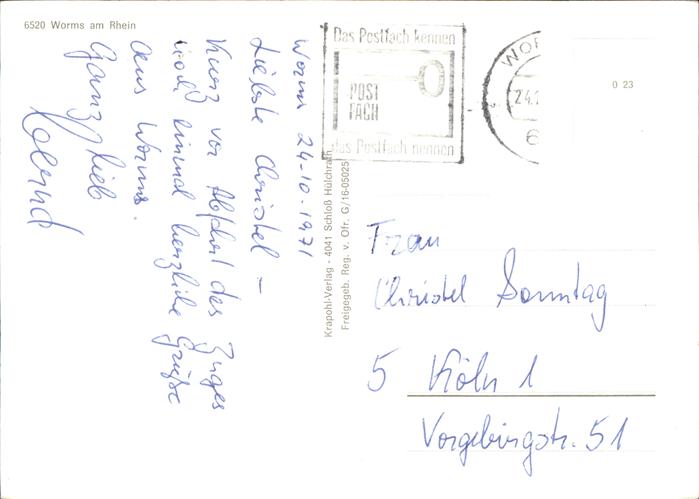 6520 Worms am Rhein
Worms 24-10-1971
Liebste Christel –
Kurz vor Abfahrt des Zuges
noch einmal herzliche Grüße
aus Worms.
Ganz lieb
Das Postfach kennen
POST
FACH
das Postfach nennen
WOR
24.1
6
0 23
Krapohl-Verlag - 4041 Schloß Hülchrath
Freigegeb. Reg. v. Ofr. G/16-05025
Frau
Christel Sonntag
5 Köln 1
Vorgebirgstr. 51